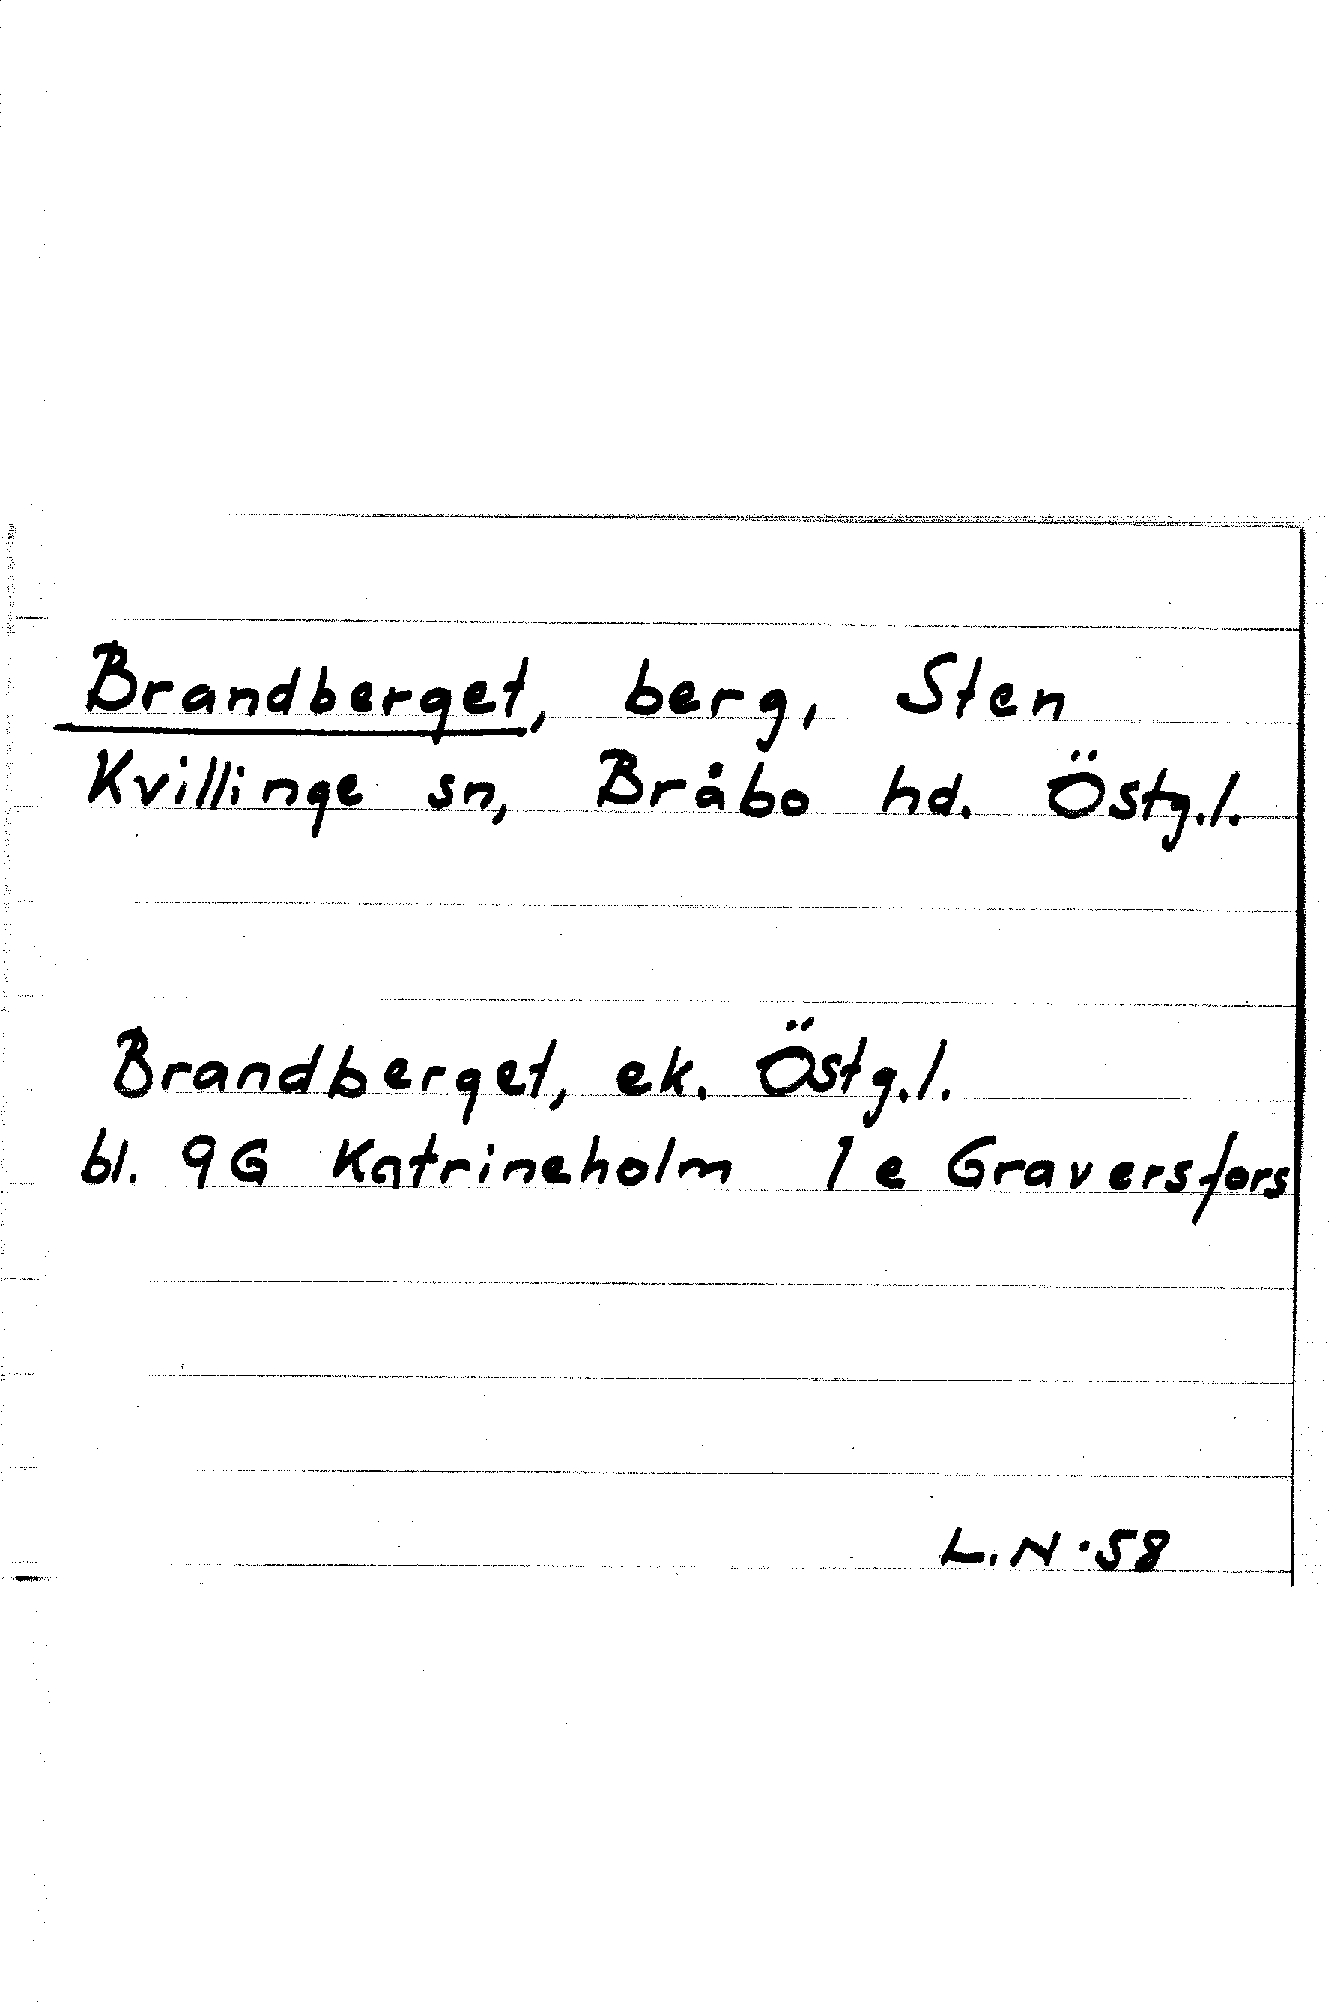 Brandberget, berg, Sten
Kvillinge sn, Bråbo hd. Östg.l.
Brandberget, ek. Östg.l.
bl. 9G Katrineholm 1e Graversfors
L.N.58